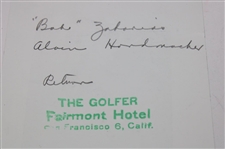 "Babe" Zaharias
Alvin Handmacher
Return
THE GOLFER
Fairmont Hotel
San Francisco 6, Calif.